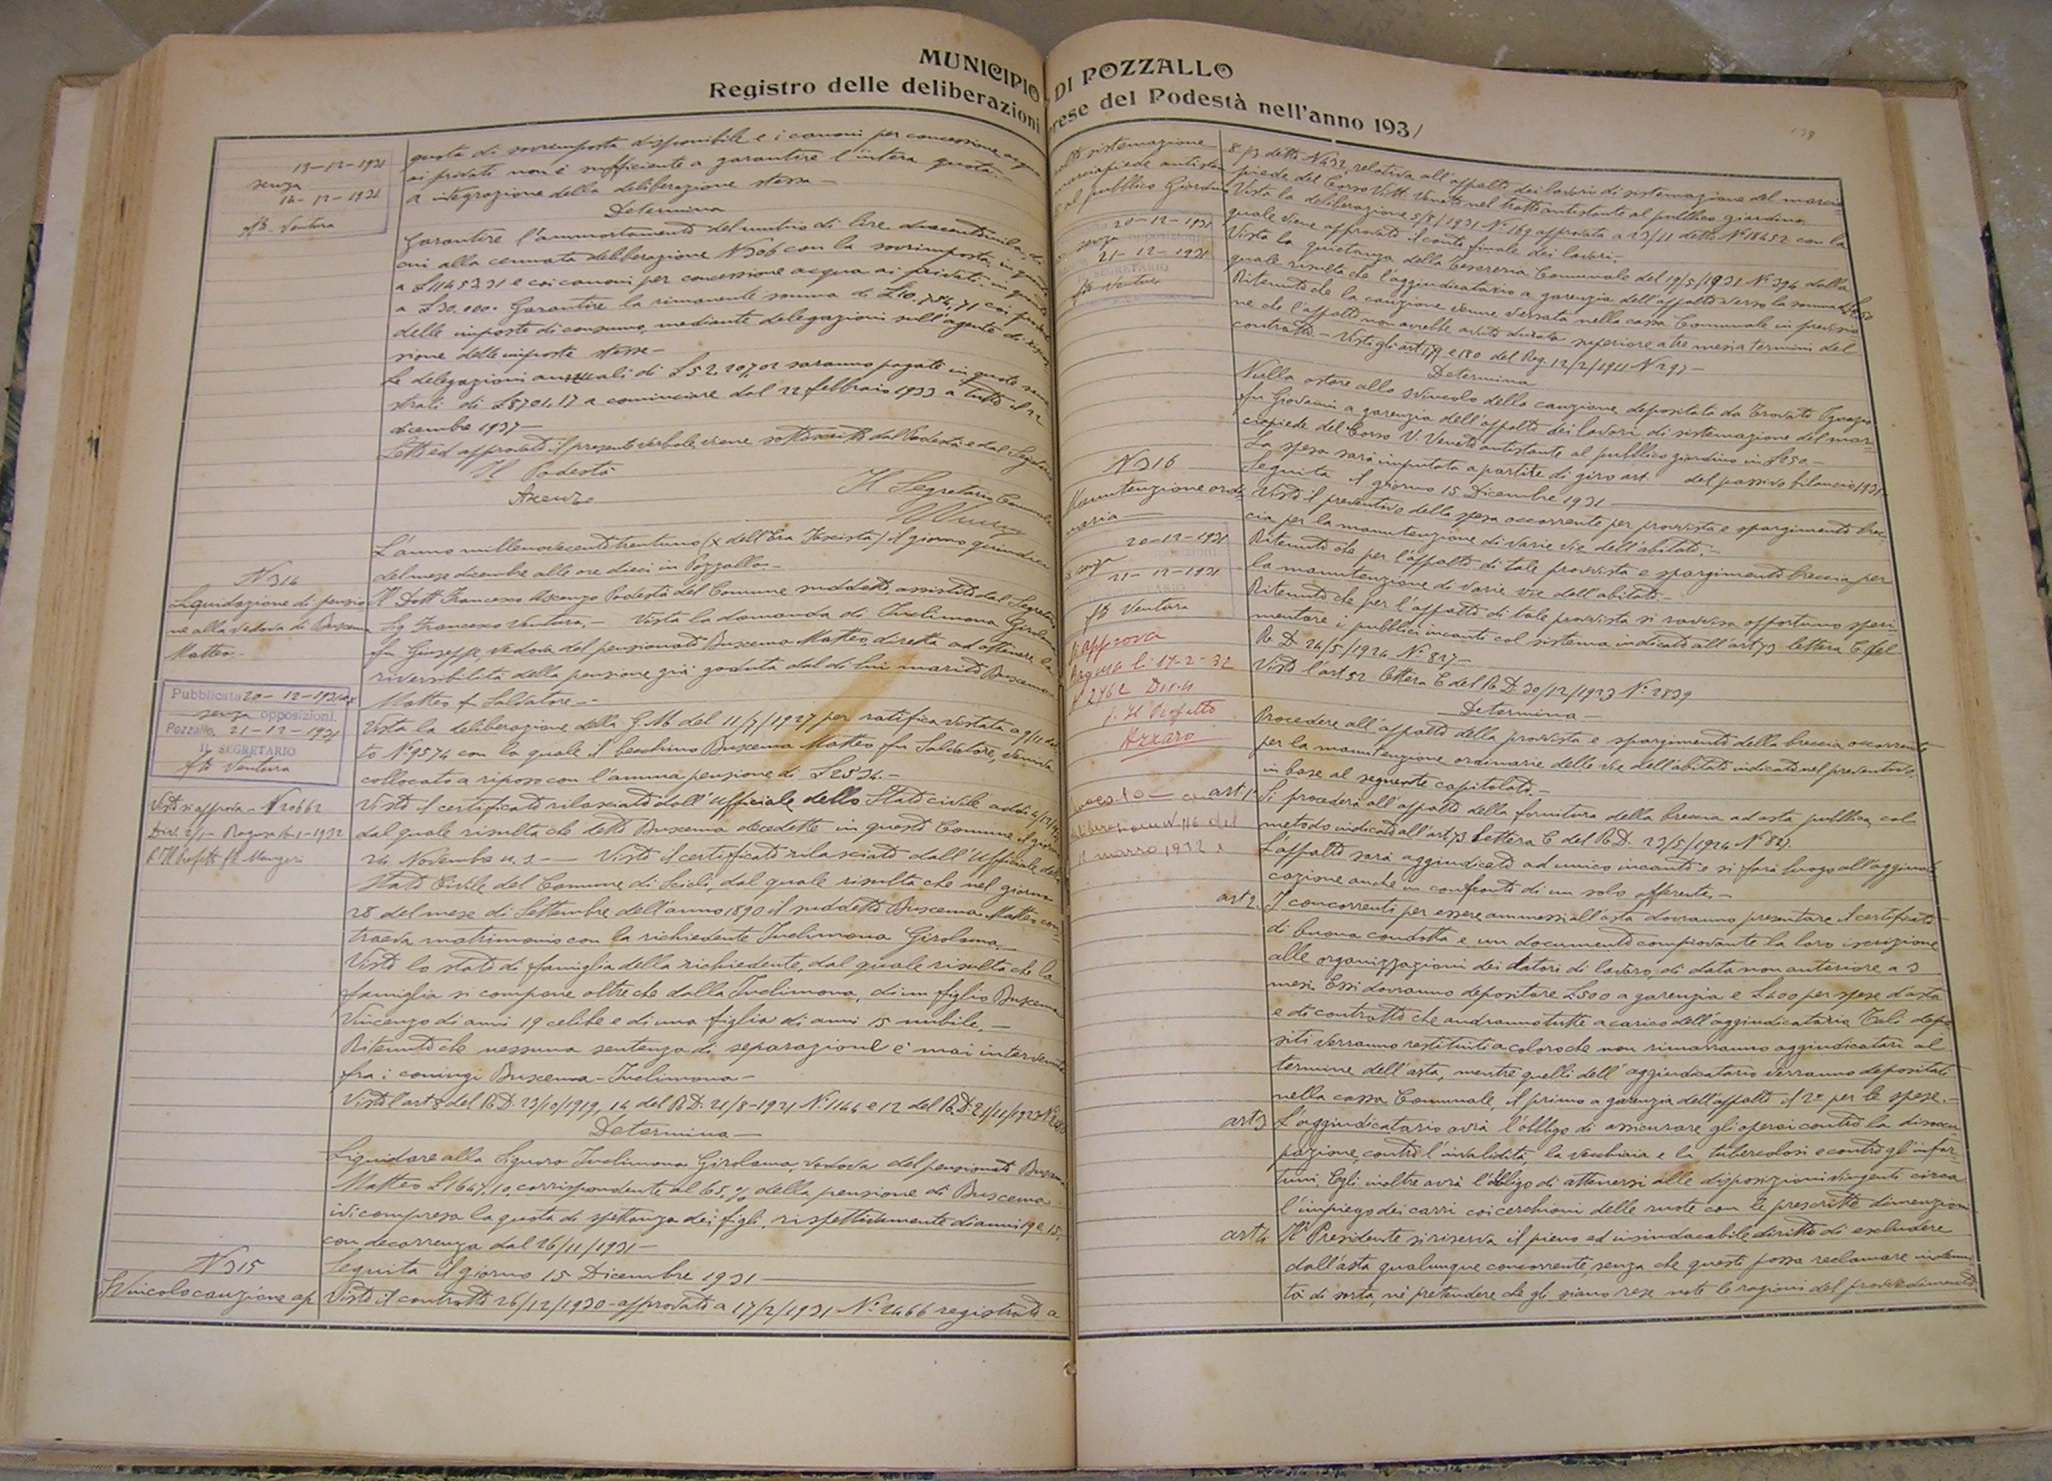 MUNICIPIO DI POZZALLO
Registro delle deliberazioni prese del Podestà nell'anno 1931
138
13-12-1931
senza
14-12-1931
fto Ventura
quota di sovrimposta disponibile e i canoni per concessione acqua
ai privati non è sufficiente a garantire l'intera quota.
a integrazione della deliberazione stessa —
Determina
Garantire l'ammortamento del mutuo di lire
cui alla cennata deliberazione N 306 con la sovrimposta, in quanto
a £ 11453,31 e coi canoni per concessione acqua ai privati, in quanto
a £ 30.000. Garantire la rimanente somma di £ 10.754,71 coi
delle imposte di consumo, mediante delegazioni sull'agente di
sione delle imposte stesse —
Le delegazioni annuali di £ 52 207,02 saranno pagate in quote
strali di £ 8701,17 a cominciare dal 22 febbraio 1933 a tutto il 22
dicembre 1937 —
Letto ed approvato il presente verbale viene sottoscritto dal Podestà e dal Segretario
Il Podestà
Ascenzo
Il Segretario Comunale
L'anno millenovecentotrentuno (X dell'Era Fascista) il giorno quindici
del mese dicembre alle ore dieci in Pozzallo —
N 314
Liquidazione di pensio
ne alla vedova di Buscema
Matteo —
Il Dott. Francesco Ascenzo Podestà del Comune suddetto, assistito dal Segretario
Sig. Francesco Ventura, — Vista la domanda di Iuclimona Girolama
fu Giuseppe vedova del pensionato Buscema Matteo, diretta ad ottenere la
riversibilità della pensione già goduta dal di lui marito Buscema
Matteo fu Salvatore —
Pubblicata 20-12-1931
senza opposizioni.
Pozzallo, 21-12-1931
IL SEGRETARIO
fto Ventura
Vista la deliberazione della G.M. del 11/7/1927 per ratifica vistata a
to N° 9574 con la quale il becchino Buscema Matteo fu Salvatore, veniva
collocato a riposo con l'annua pensione di £ 2534. —
Visto si approva — N 20662
Div. 2/1 — Ragusa 16-1-1932
Visto il certificato rilasciato dall'Ufficiale dello Stato civile addì
dal quale risulta che detto Buscema decedette in questo Comune il giorno
24 Novembre u. s. — Visto il certificato rilasciato dall'Ufficiale dello
Stato Civile del Comune di Scicli, dal quale risulta che nel giorno
28 del mese di Settembre dell'anno 1890 il suddetto Buscema Matteo con-
traeva matrimonio con la richiedente Iuclimona Girolama —
Visto lo stato di famiglia della richiedente, dal quale risulta che la
famiglia si compone oltre che dalla Iuclimona, di un figlio Buscema
Vincenzo di anni 19 celibe e di una figlia di anni 15 nubile. —
Ritenuto che nessuna sentenza di separazione è mai intervenuta
fra i coniugi Buscema-Iuclimona —
Visto l'art 8 del R.D. 23/10/1919, 14 del R.D. 21/8-1921 N. 1144 e 12 del R.D. 21/11/1923 N
Determina —
Liquidare alla Signora Iuclimona Girolama vedova del pensionato Buscema
Matteo £ 1647.10, corrispondente al 65% della pensione di Buscema
ivi compresa la quota di spettanza dei figli, rispettivamente di anni 19 e 15,
con decorrenza dal 26/11/1931 —
Seguita il giorno 15 Dicembre 1931
N 315
Svincolo cauzione ap
Visto il contratto 26/12/1930 approvato a 17/2/1931 N° 2466 registrato a
palto sistemazione
marciapiede antistan
te al pubblico Giardino
20-12-1931
senza opposizioni
21-12-1931
IL SEGRETARIO
fto Ventura
8/3 detto N 432, relativa all'appalto dei lavori di sistemazione del marcia-
piede del Corso Vitt. Veneto nel tratto antistante al pubblico giardino
Vista la deliberazione 5/8/1931 N° 169 approvata a 23/11 detto N° 18452 con la
quale viene approvato il conto finale dei lavori. —
Vista la quietanza della Tesoreria Comunale del 19/5/1931 N° 394 dalla
quale risulta che l'aggiudicatario a garenzia dell'appalto versò la somma di £ 250
Ritenuto che la cauzione venne versata nella cassa Comunale in previsio
ne che l'appalto non avrebbe avuto durata superiore a tre mesi a termini del
contratto. — Visti gli art 179 e 180 del Reg. 12/2/1911 N 297 —
Determina
Nulla ostare allo svincolo della cauzione depositata da Trovato Ignazio
fu Giovanni a garenzia dell'appalto dei lavori di sistemazione del mar-
ciapiede del Corso V. Veneto antistante al pubblico giardino in £ 250. —
La spesa sarà imputata a partite di giro art. del passivo bilancio 1931
Seguita il giorno 15 Dicembre 1931
N 316
Manutenzione ordi
naria —
20-12-1931
senza opposizioni
21-12-1931
fto Ventura
Visto il preventivo della spesa occorrente per provvista e spargimento brec-
cia per la manutenzione di varie vie dell'abitato. —
Ritenuto che per l'appalto di tale provvista e spargimento breccia per
la manutenzione di varie vie dell'abitato —
Ritenuto che per l'appalto di tale provvista si ravvisa opportuno speri-
mentare i pubblici incanti col sistema indicato all'art 73 lettera C del
R. D. 24/5/1924 N° 827 —
Visto l'art 52 lettera C del R. D. 30/12/1923 N° 2839
Si approva
Ragusa li 17-2-32
N° 2462 Div. 4
p. Il Prefetto
Azzaro
Determina —
Procedere all'appalto della provvista e spargimento della breccia occorrente
per la manutenzione ordinarie delle vie dell'abitato indicato nel preventivo,
in base al seguente capitolato. —
Revocato — con
deliberazione N 116 del
marzo 1932
art 1° Si procederà all'appalto della fornitura della breccia ad asta pubblica, col
metodo indicato all'art 73 lettera C del R.D. 23/5/1924 N° 827.
L'appalto sarà aggiudicato ad unico incanto e si farà luogo all'aggiudi
cazione anche in confronto di un solo offerente. —
art 2. I concorrenti per essere ammessi all'asta dovranno presentare il certificato
di buona condotta e un documento comprovante la loro iscrizione
alle organizzazioni dei datori di lavoro, di data non anteriore a 3
mesi. Essi dovranno depositare £ 500 a garenzia e £ 400 per spese d'asta
e di contratto che andranno tutte a carico dell'aggiudicatario. Tali depo
siti verranno restituiti a coloro che non rimarranno aggiudicatari al
termine dell'asta, mentre quelli dell'aggiudicatario verranno depositati
nella cassa Comunale, il primo a garenzia dell'appalto il 2° per le spese. —
art 3 L'aggiudicatario avrà l'obbligo di assicurare gli operai contro la disoccu
pazione, contro l'invalidità, la vecchiaia e la tubercolosi e contro gl'infor-
tuni. Egli inoltre avrà l'obbligo di attenersi alle disposizioni vigenti circa
l'impiego dei carri coi cerchioni delle ruote con le prescritte dimenzioni
art 4 Il Presidente si riserva il pieno ed insindacabile diritto di escludere
dall'asta qualunque concorrente, senza che questi possa reclamare indenni
tà di sorta, nè pretendere che gli siano rese note le ragioni del provvedimento